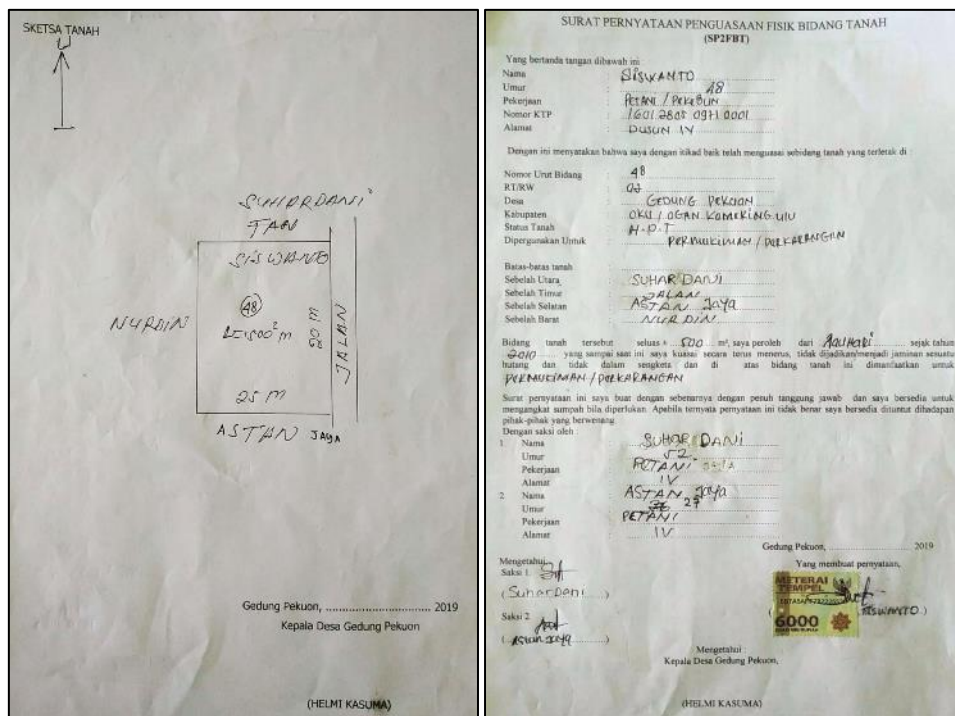 SKETSA TANAH
U
SUHARDANI
TAN
SISWANTO
NURDIN
48
L=500²m
20 m
JALAN
25 m
ASTAN JAYA
Gedung Pekuon, .............................. 2019
Kepala Desa Gedung Pekuon
(HELMI KASUMA)
SURAT PERNYATAAN PENGUASAAN FISIK BIDANG TANAH
(SP2FBT)
Yang bertanda tangan dibawah ini :
Nama : SISWANTO
Umur : 48
Pekerjaan : PETANI / PEKEBUN
Nomor KTP : 1601 2805 0971 0001
Alamat : DUSUN IV
Dengan ini menyatakan bahwa saya dengan itikad baik telah menguasai sebidang tanah yang terletak di :
Nomor Urut Bidang : 48
RT/RW : 02
Desa : GEDUNG PEKUON
Kabupaten : OKU / OGAN KOMERING ULU
Status Tanah : H-P-T
Dipergunakan Untuk : PERMUKIMAN / PERKARANGAN
Batas-batas tanah
Sebelah Utara : SUHAR DANI
Sebelah Timur : JALAN
Sebelah Selatan : ASTAN Jaya
Sebelah Barat : NURDIN
Bidang tanah tersebut seluas ± 500 m², saya peroleh dari JAUHARI sejak tahun
2010 yang sampai saat ini saya kuasai secara terus menerus, tidak dijadikan/menjadi jaminan sesuatu
hutang dan tidak dalam sengketa dan di atas bidang tanah ini dimanfaatkan untuk
PERMUKIMAN / PERKARANGAN
Surat pernyataan ini saya buat dengan sebenarnya dengan penuh tanggung jawab dan saya bersedia untuk
mengangkat sumpah bila diperlukan. Apabila ternyata pernyataan ini tidak benar saya bersedia dituntut dihadapan
pihak-pihak yang berwenang.
Dengan saksi oleh :
1 Nama : SUHAR DANI
Umur : 52
Pekerjaan : PETANI
Alamat : IV
2 Nama : ASTAN Jaya
Umur : 27
Pekerjaan : PETANI
Alamat : IV
Gedung Pekuon, .............................. 2019
Mengetahui
Yang membuat pernyataan,
Saksi 1.
(SuharDani)
METERAI
TEMPEL
6000
(SISWANTO)
Saksi 2
(Astan Jaya)
Mengetahui :
Kepala Desa Gedung Pekuon,
(HELMI KASUMA)